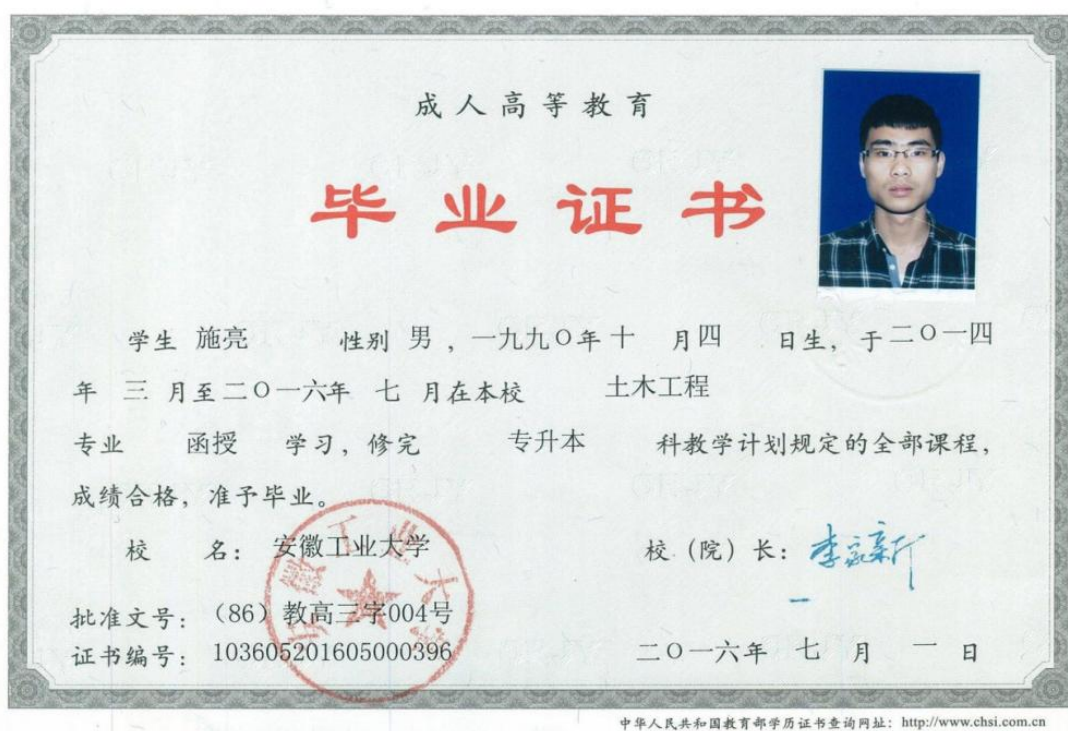 成人高等教育
毕业证书
学生 施亮 性别 男，一九九〇年 十 月 四 日生，于二〇一四
年 三 月至二〇一六年 七 月在本校 土木工程
专业 函授 学习，修完 专升本 科教学计划规定的全部课程，
成绩合格，准予毕业。
校 名：安徽工业大学 校（院）长：
批准文号：（86）教高三字004号
证书编号：103605201605000396 二〇一六年 七 月 一 日
中华人民共和国教育部学历证书查询网址：http://www.chsi.com.cn